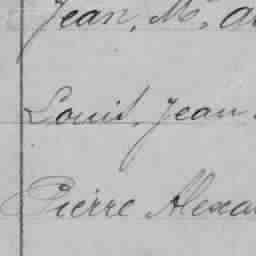 Jean, M.
Louis, Jean
Pierre Alexa